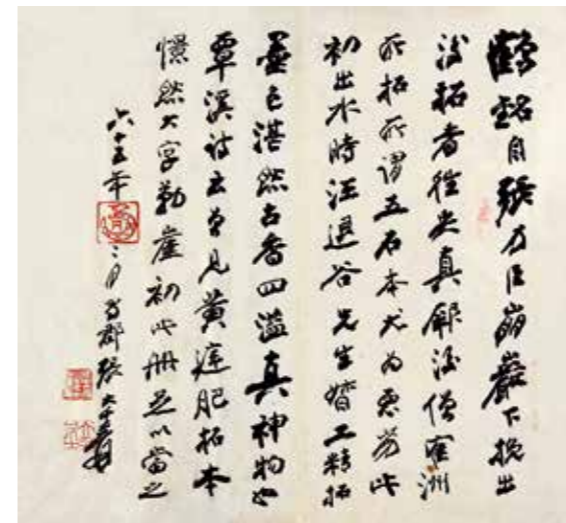 鶴銘自張力臣崩巖下挽出
後拓者往失真僧寉洲
所拓所謂五石本尤為惡劣此
初出水時汪退谷先生督工精拓
墨色湛然古香四溢真神物也
覃溪詩云曾見黃庭肥拓本
憬然大字勒崖初此冊足以當之
六十五年月蜀郡張大千爰